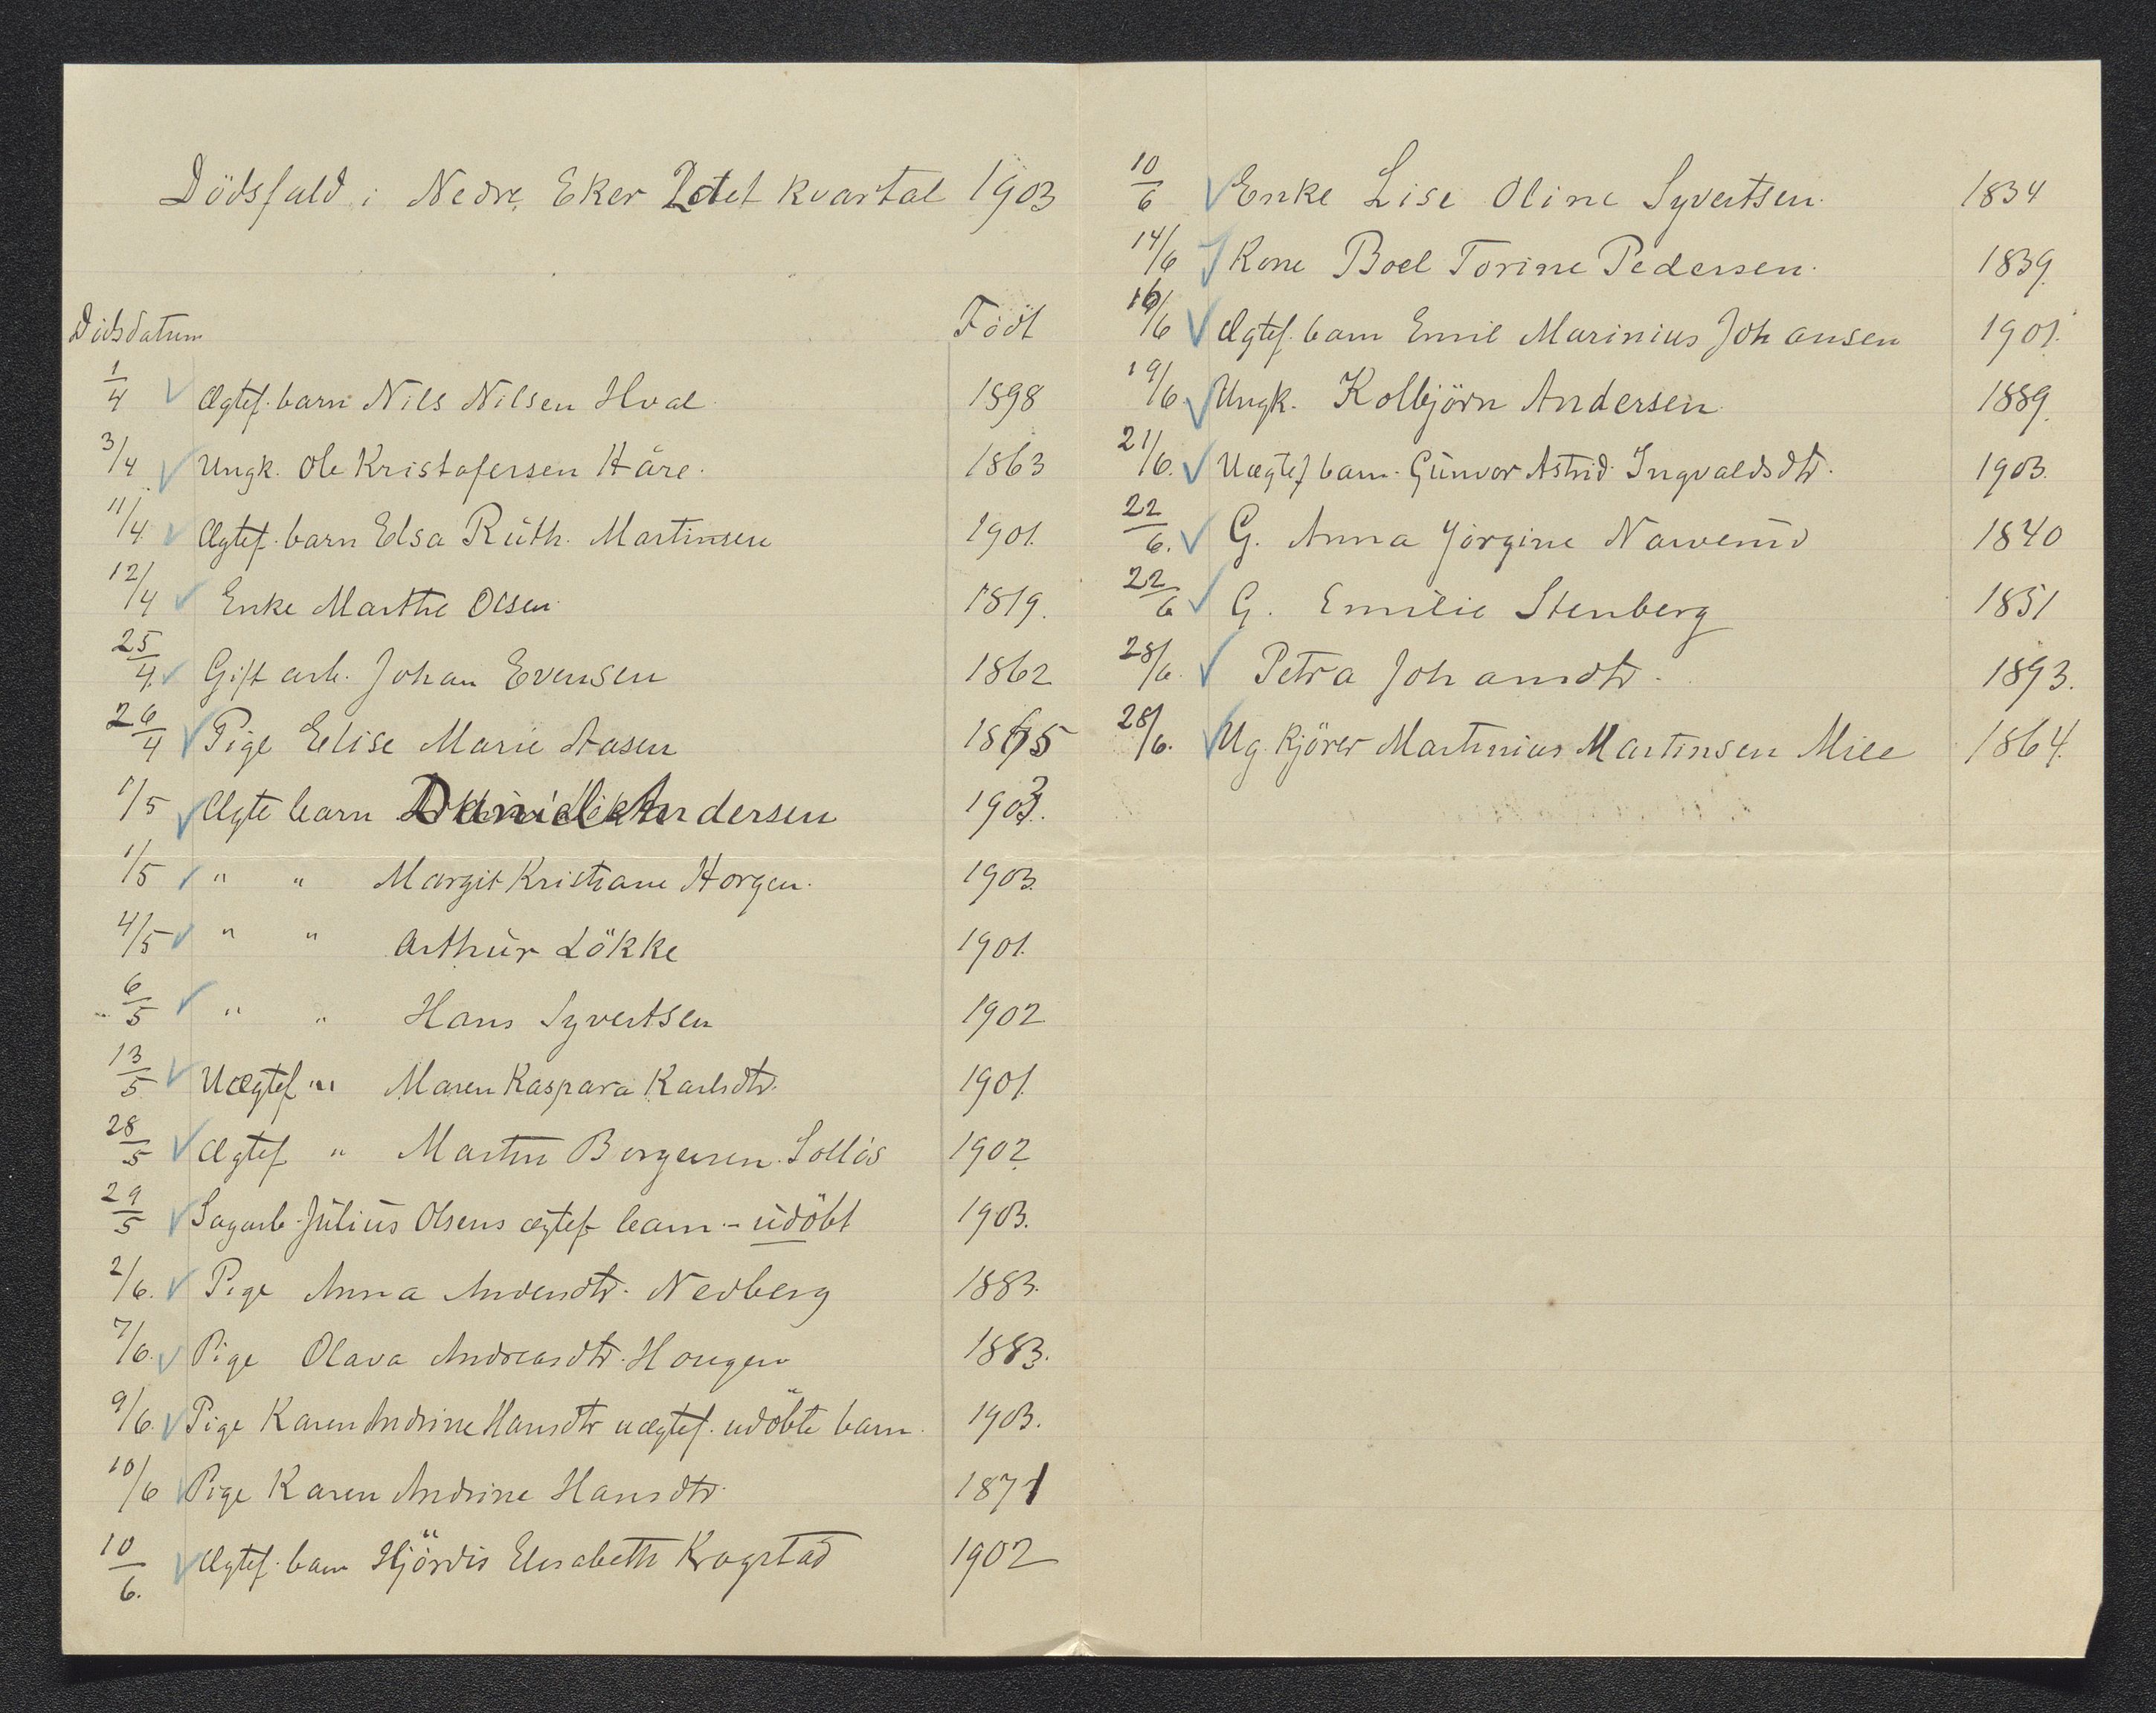 Dödsfald i Nedre Eker 2det kvartal 1903
Dödsdatum Födt
1/4 Ægtef. barn Nils Nilsen Hval 1898
3/4 Ungk. Ole Kristofersen Håre. 1863
11/4 Ægtef. barn Elsa Ruth. Martinsen 1901.
12/4 Enke Marthe Olsen 1819.
25/4. Gift arb. Johan Evensen 1862
26/4 Pige Elise Marie Aasen 1865
1/5 Ægte barn Daniel Andersen 1903.
1/5 " " Margit Kristiane Horgen. 1903.
4/5 " " Arthur Lökke 1901.
6/5 " " Hans Syvertsen 1902
13/5 Uægtef " Maren Kaspara Karlsdtr. 1901.
28/5 Ægtef " Martin Borgersen Sollös 1902
29/5 Sagarb. Julius Olsens ægtef barn - udöbt 1903.
2/6. Pige Anna Andersdtr. Nedberg 1883.
7/6. Pige Olava Andreasdtr. Hougen 1883.
9/6. Pige Karen Andrine Hansdtr uægtef. udöbte barn. 1903.
10/6 Pige Karen Andrine Hansdtr. 1871
10/6. Ægtef. barn Hjördis Elisabeth Krogstad 1902
10/6 Enke Lise Oline Syvertsen. 1834
14/6 Kone Boel Torine Pedersen. 1839.
16/6 Ægtef. barn Emil Marinius Johansen 1901.
19/6 Ungk. Kolbjörn Andersen 1889.
21/6. Uægtef barn. Gunvor Astrid Ingvaldsdtr. 1903.
22/6. G. Anna Jörgine Narverud 1840
22/6 G. Emilie Stenberg 1851
28/6. Petra Johansdtr. 1893.
28/6. Ug. kjörer Martinius Martinsen Mile 1864.